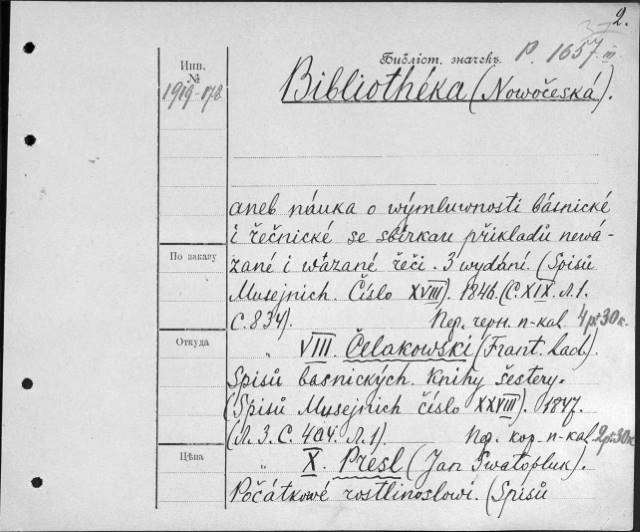 2.
Библіот. значекъ. P. 1657 III
Инв.
№
1919-178
Bibliothéka (Nowočeská).
aneb náuka o wýmluwnosti básnické
i řečnické se sbírkau příkladů newá-
zané i wázané řeči. 3 wydání. (Spisů
По заказу
Musejnich. Číslo XVIII). 1846. (С. XIX. Л. 1.
С. 834). Пер. черн. п-кал. 4 р. 30 к.
Откуда
" VIII. Čelakowski (Frant. Lad.).
Spisů basnických. Knihy šestery.
(Spisů Musejnich číslo XXVIII). 1847.
(Л. 3. С. 404. Л. 1) Пер. кор-п-кал. 2 р. 30 к
Цѣна
" X. Presl (Jan Swatopluk).
Počátkowé rostlinoslowí. (Spisů